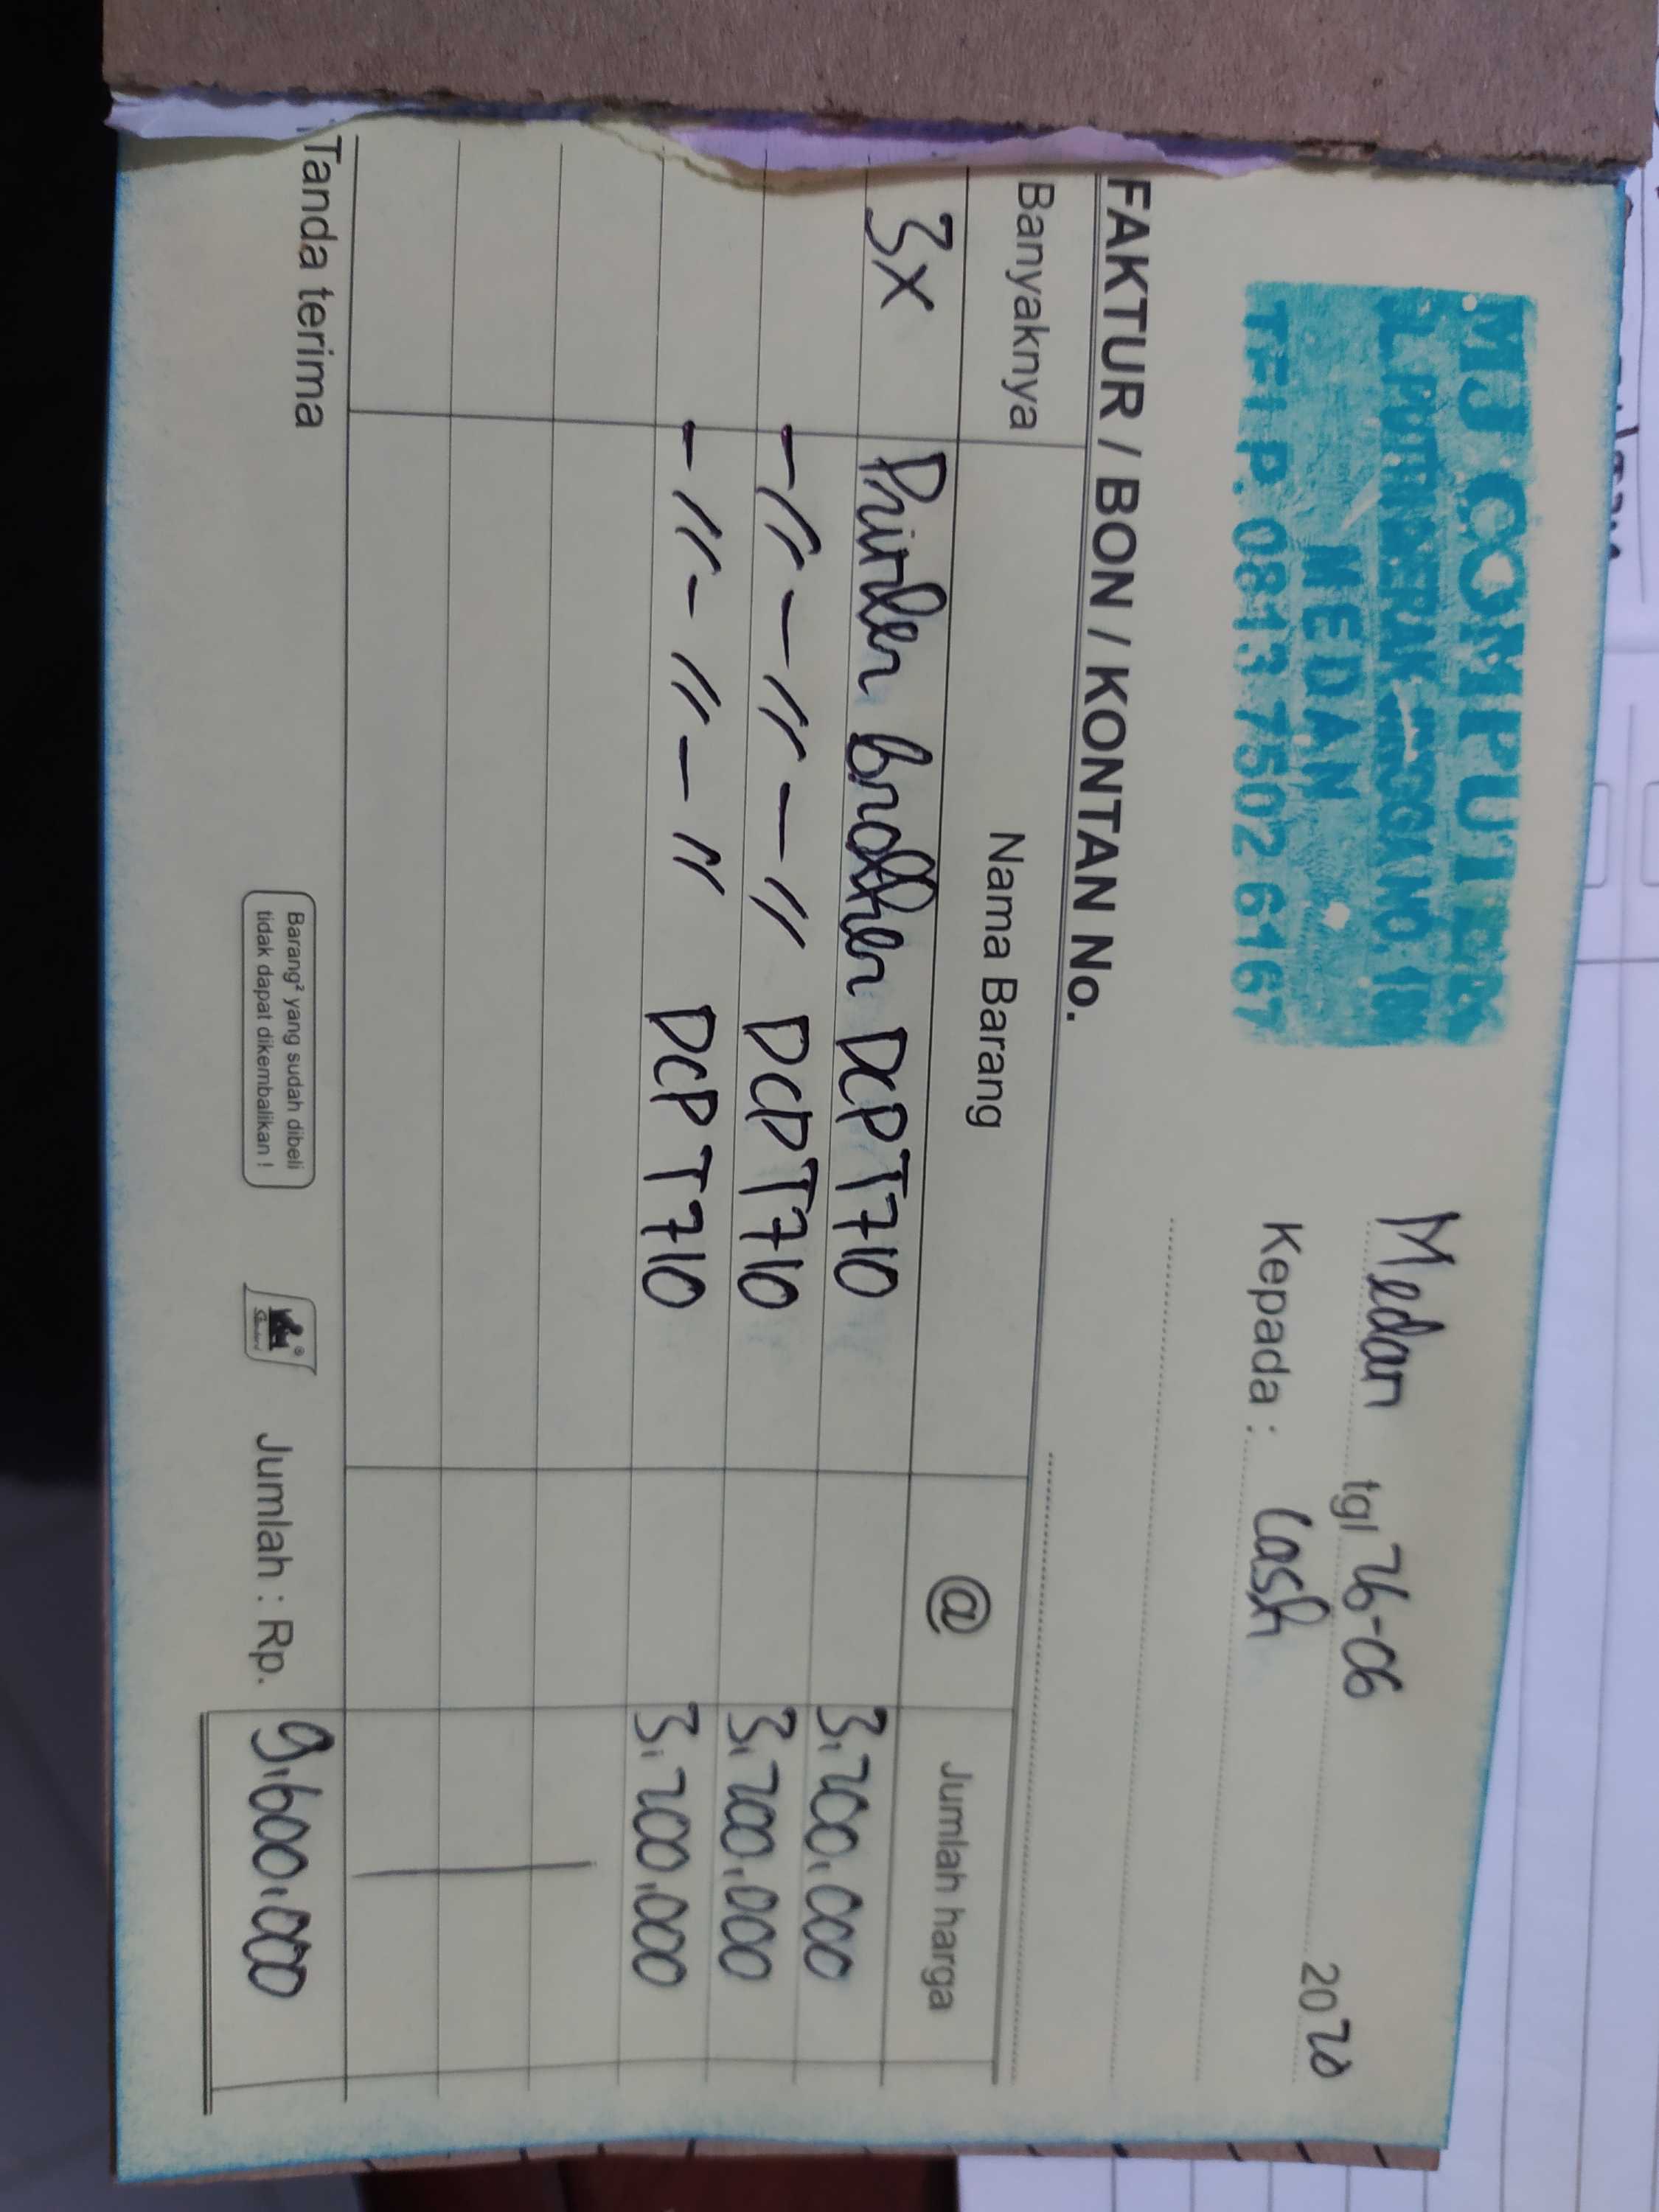 MJ COMPUTER
MEDAN
TELP. 0813 7502 6167
Medan tgl 26-06 2020
Kepada : Cash
FAKTUR / BON / KONTAN No.
Banyaknya Nama Barang @ Jumlah harga
3x Printer brother DCP T710 3.200.000
-〃-〃-〃 DCP T710 3.200.000
-〃-〃-〃 DCP T710 3.200.000
Tanda terima
Barang² yang sudah dibeli
tidak dapat dikembalikan !
Jumlah : Rp. 9.600.000